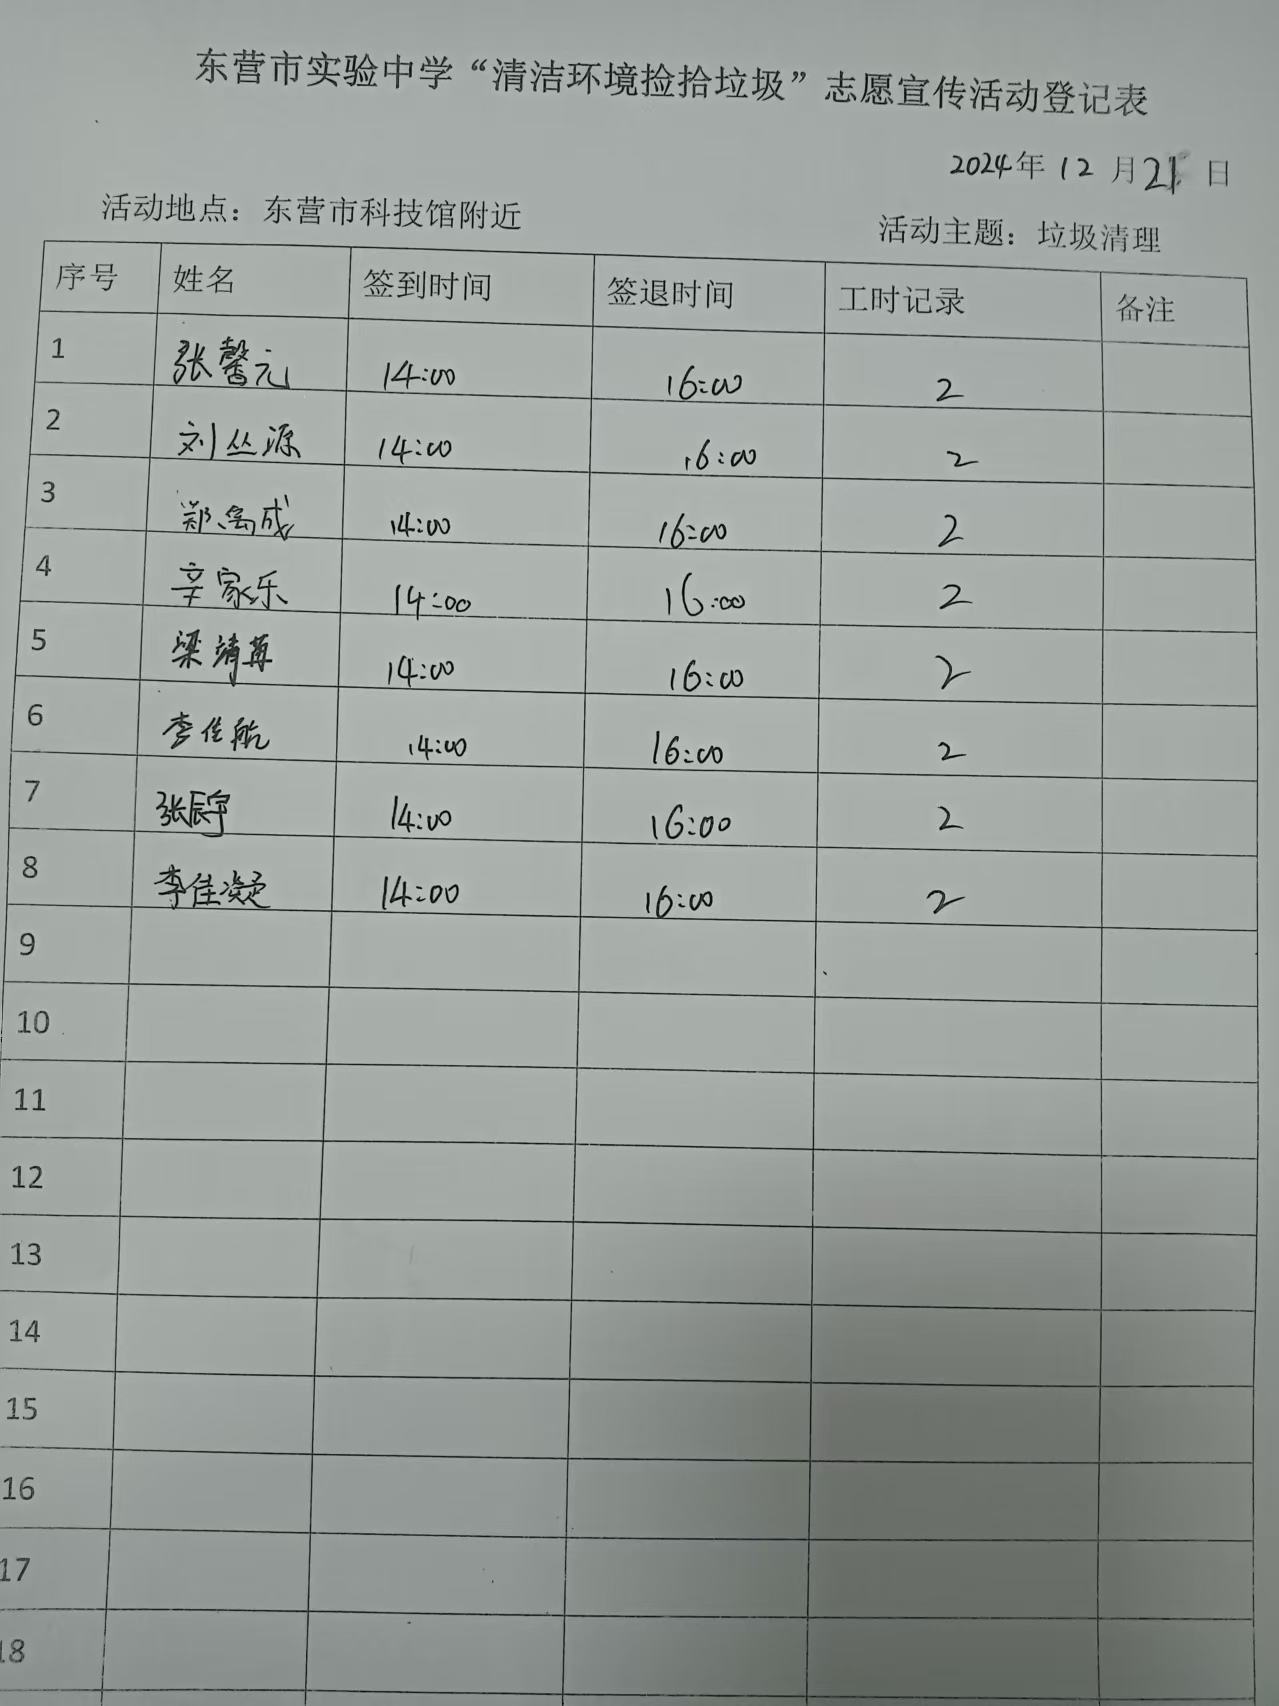 东营市实验中学“清洁环境捡拾垃圾”志愿宣传活动登记表
2024年 12 月 21 日
活动地点：东营市科技馆附近 活动主题：垃圾清理
序号 姓名 签到时间 签退时间 工时记录 备注
1 张馨元 14:00 16:00 2
2 刘丛源 14:00 16:00 2
3 郑禹成 14:00 16:00 2
4 辛家乐 14:00 16:00 2
5 梁靖苒 14:00 16:00 2
6 李佳航 14:00 16:00 2
7 张辰宇 14:00 16:00 2
8 李佳凝 14:00 16:00 2
9
10
11
12
13
14
15
16
17
18